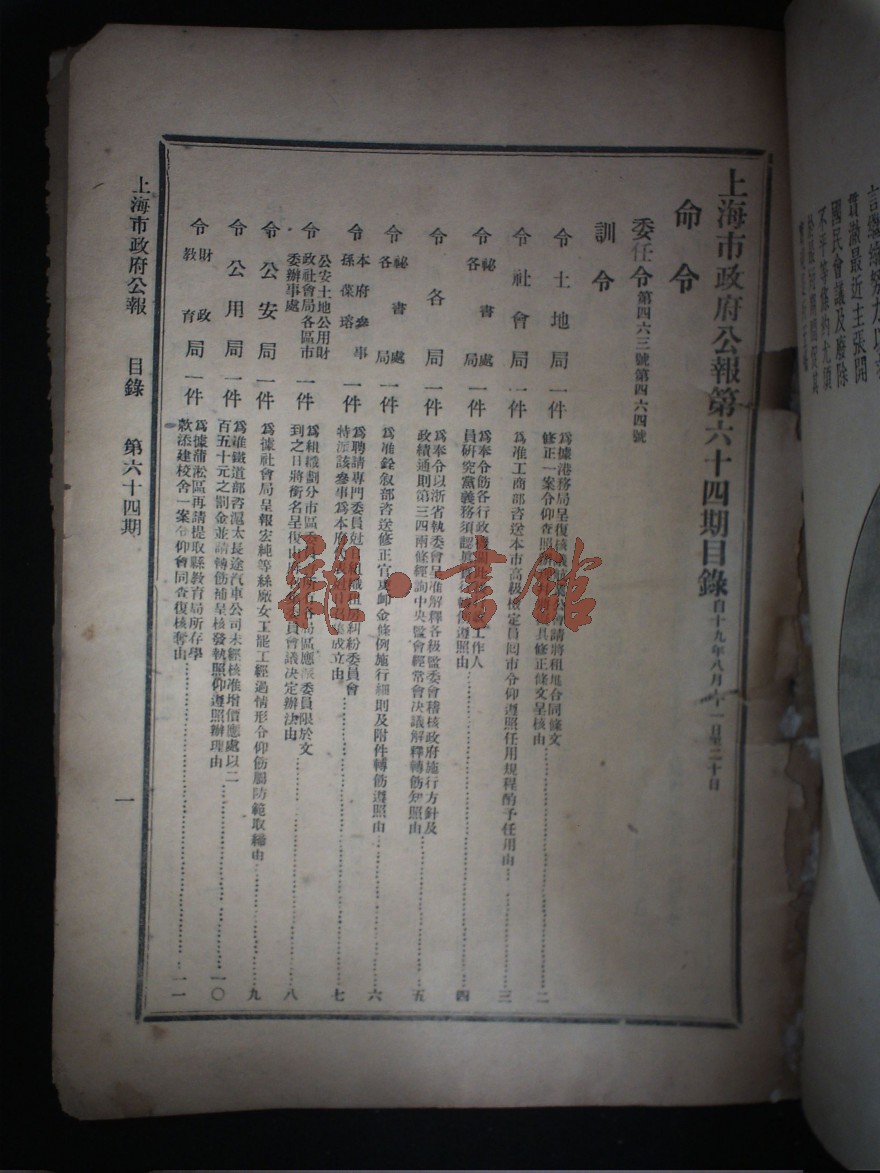 言繼續努力以求
貫澈最近主張開
國民會議及廢除
不平等條約尤須
上海市政府公報第六十四期目錄 自十九年八月十一日至二十日
命令
委任令第四六三號第四六四號
訓令
令土地局一件 爲據港務局呈復核議 請將租地合同條文
修正一案令仰查照 具修正條文呈核由 二
令社會局一件 爲准工商部咨送本市高級檢定員回市令仰遵照任用規程酌予任用由 三
令祕書處各局一件 爲奉令飭各行政機關 工作人
員研究黨義務須認 遵照由 四
令各局一件 爲奉令以浙省執委會呈准解釋各級監委會稽核政府施行方針及
政績通則第三四兩條經詢中央監會經常會決議解釋轉飭知照由 五
令祕書處各局一件 爲准銓叙部咨送修正官吏卹金條例施行細則及附件轉飭遵照由 六
令本府參事孫葆瑢一件 爲聘請專門委員尅日組織租房糾紛委員會
特派該參事爲本府代表 成立由 七
令公安土地公用財政社會局各區市委辦事處一件 爲組織劃分市區 各局區應派委員限於文
到之日將銜名呈復 委員會議決定辦法由 八
令公安局一件 爲據社會局呈報宏純等絲廠女工罷工經過情形令仰飭屬防範取締由 九
令公用局一件 爲准鐵道部咨滬太長途汽車公司未經核准增價應處以二
百五十元之罰金並請轉飭補呈核發執照仰遵照辦理由 一〇
令財政教育局一件 爲據蒲淞區再請提取縣教育局所存學
款添建校舍一案令仰會同查復核奪由 一一
上海市政府公報 目錄 第六十四期 一
雜·書館